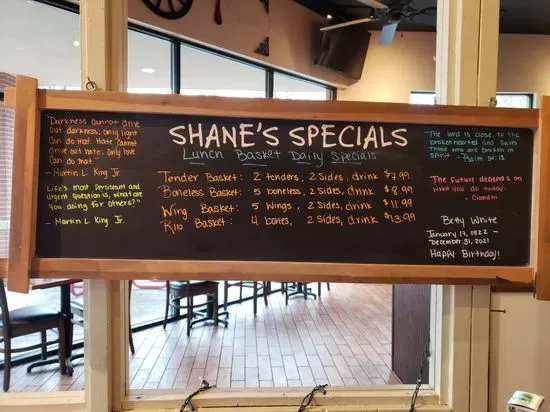 "Darkness cannot drive
out darkness; only light
Can do that. Hate cannot
drive out hate; only love
Can do that."
- Martin L King Jr.
Life's most persistent and
urgent question is, what are
you doing for others?"
- Martin L King Jr.
SHANE'S SPECIALS
Lunch Basket Daily Specials
Tender Basket: 2 tenders, 2 Sides, drink $7.99
Boneless Basket: 5 boneless, 2 sides, drink $8.99
Wing Basket: 5 Wings, 2 Sides, drink $11.99
Rib Basket: 4 bones, 2 Sides, drink $13.99
The lord is close to the
brokenhearted and Saves
Those who are broken in
spirit - Psalm 34:18
The Future depends on
What you do today.
- Gandhi
Betty White
January 17, 1922 -
December 31, 2021
Happy Birthday!